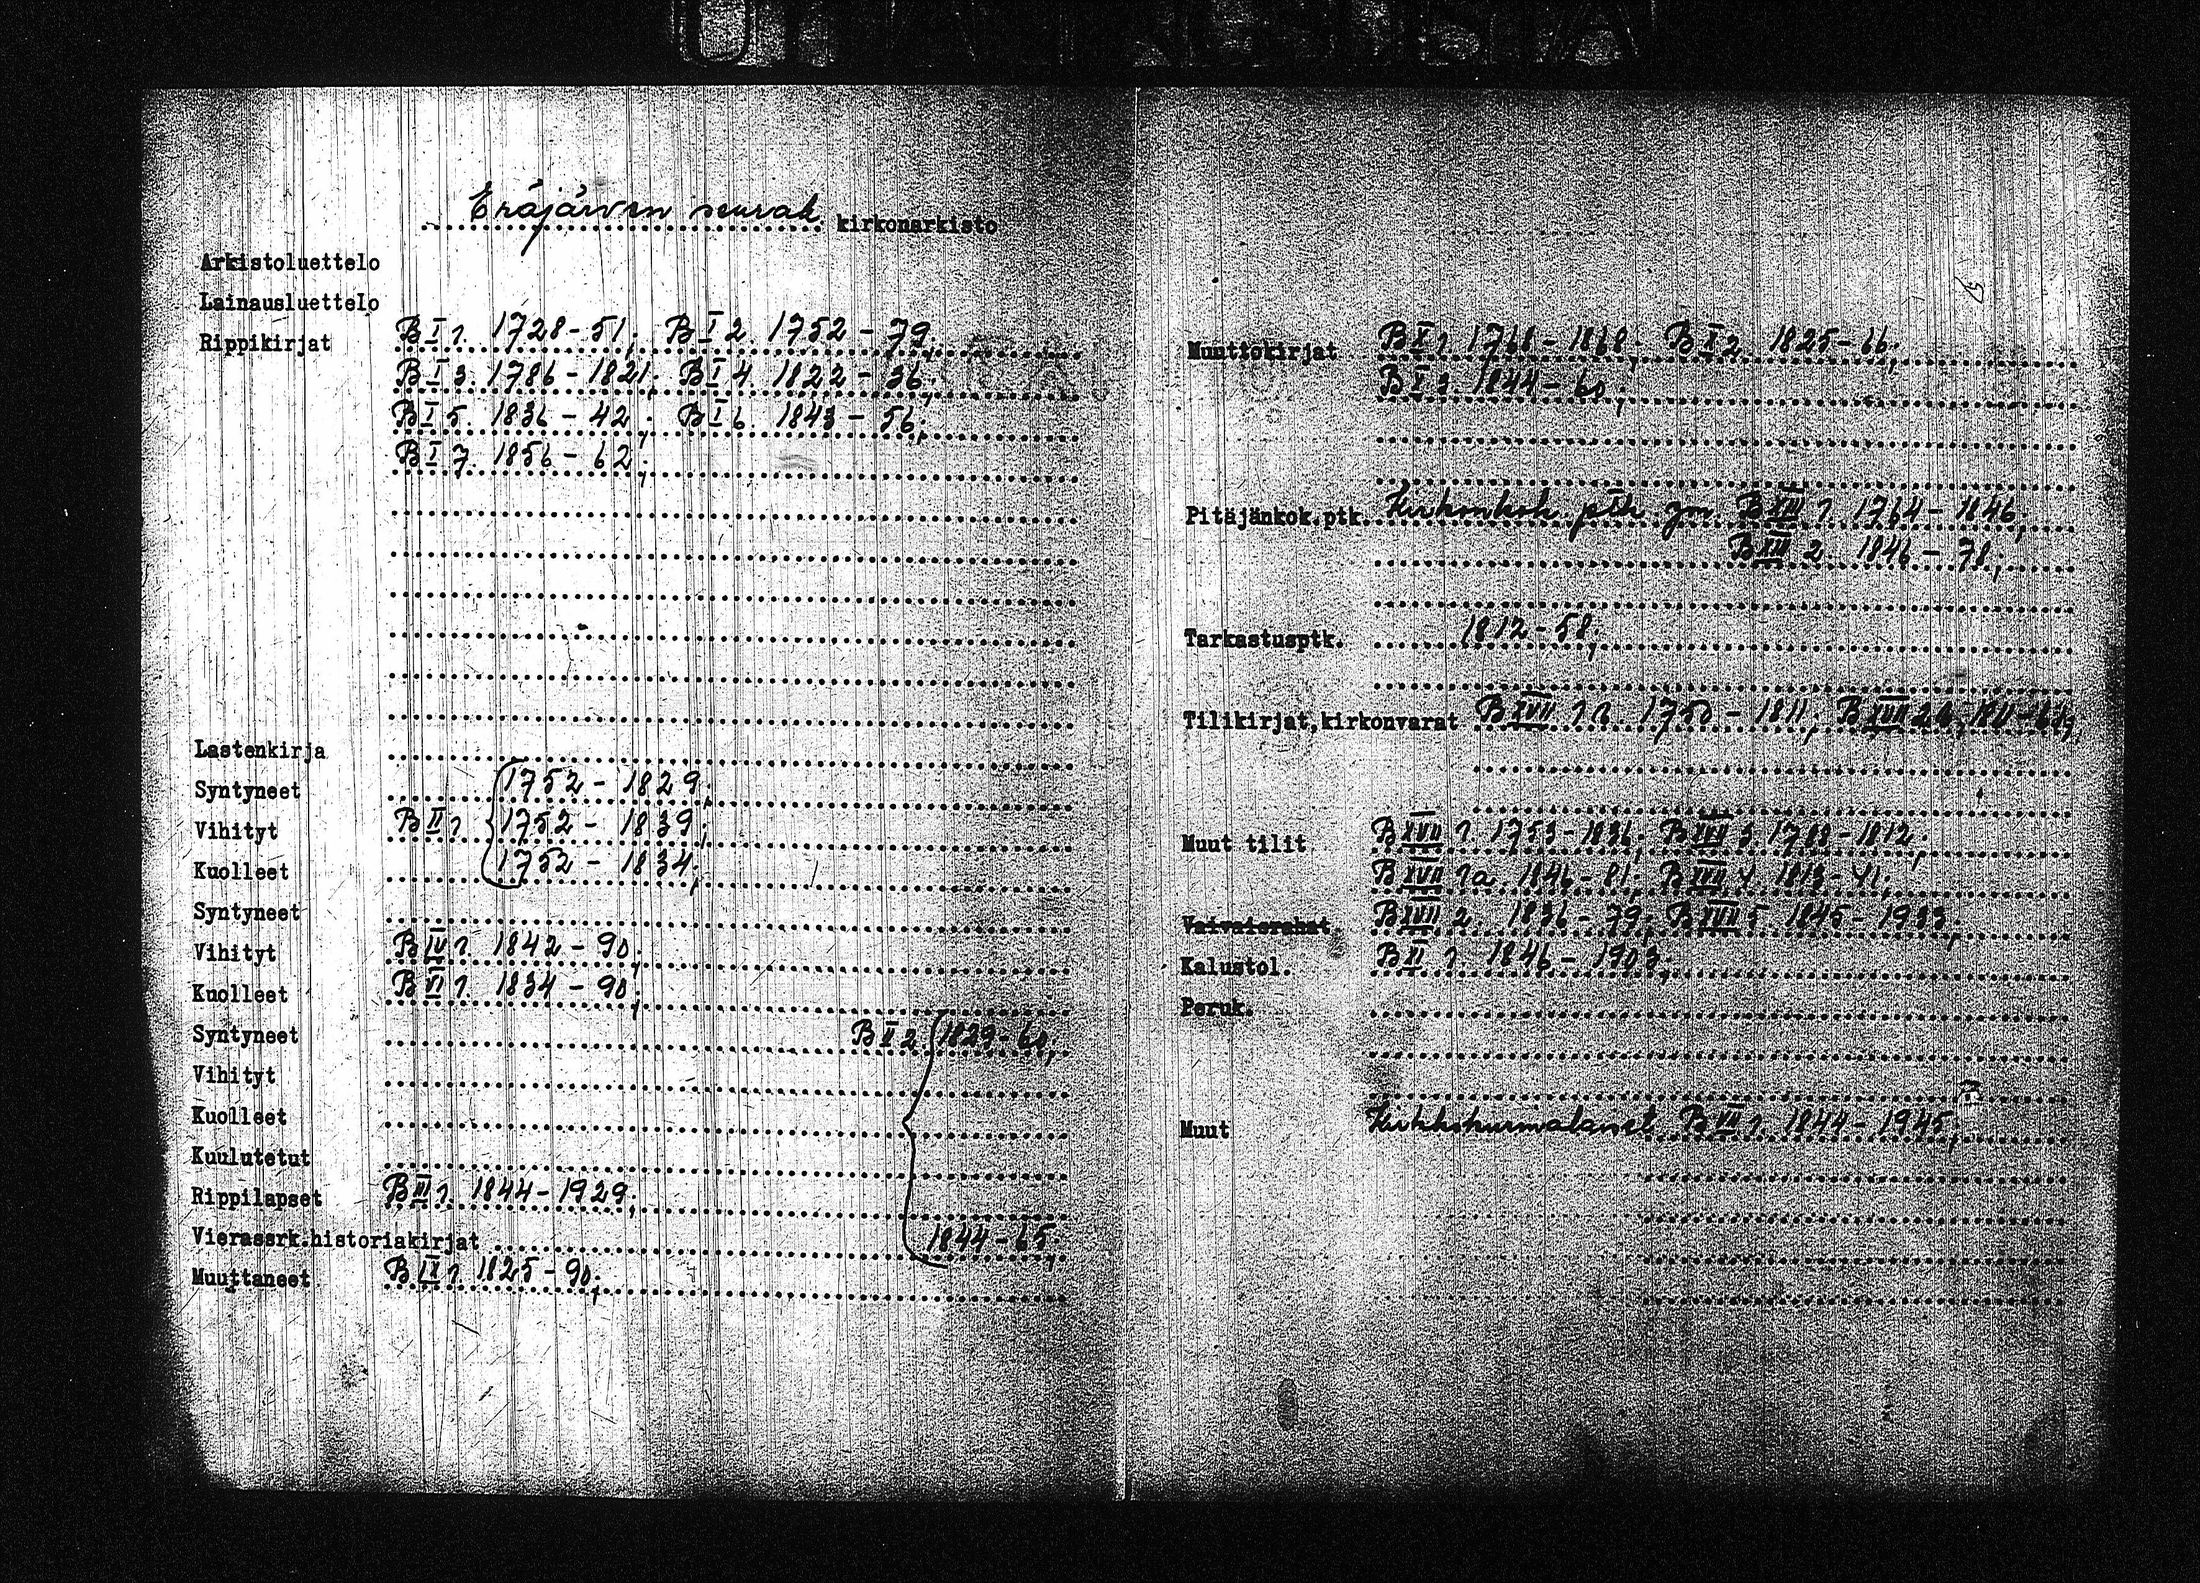 Eräjärven seurak. kirkonarkisto
Arkistoluettelo
Lainausluettelo
Rippikirjat B I 1. 1728-51; B I 2 1752-79;
B I 3. 1786-1821; B I 4 1822-36;
B I 5. 1836-42; B I 6 1843-56;
B I 7. 1856-62;
Lastenkirja
Syntyneet 1752-1829;
Vihityt B II 1. 1752-1839;
Kuolleet 1752-1834;
Syntyneet
Vihityt B IV 1. 1842-90;
Kuolleet B VI 1. 1834-90;
Syntyneet B II 2. 1829-60;
Vihityt
Kuolleet
Kuulutetut
Rippilapset B III 1. 1844-1929;
Vierassrk.historiakirjat 1844-65;
Muuttaneet B IX 1. 1825-90;
Muuttokirjat B X 1 1768-1868; B X 2 1825-66;
B X 3. 1844-60;
Pitäjänkok.ptk. Kirkonkok. ptk ym. B XII 1. 1764-1846;
B XII 2. 1846-78;
Tarkastusptk. 1812-58;
Tilikirjat,kirkonvarat B XVII 1b. 1750-1811; B XVII 2b,
Muut tilit B XVII 1. 1753-1836; B XVII 3 1788-1812;
B XVII 1a. 1846-81; B XVII 4 1813-41;
Vaivaisrahat B XVII 2. 1836-79; B XVII 5 1845-1933;
Kalustol. B XI 1 1846-1903;
Peruk.
Muut Kirkkokurinalaiset B VII 1. 1844-1945;